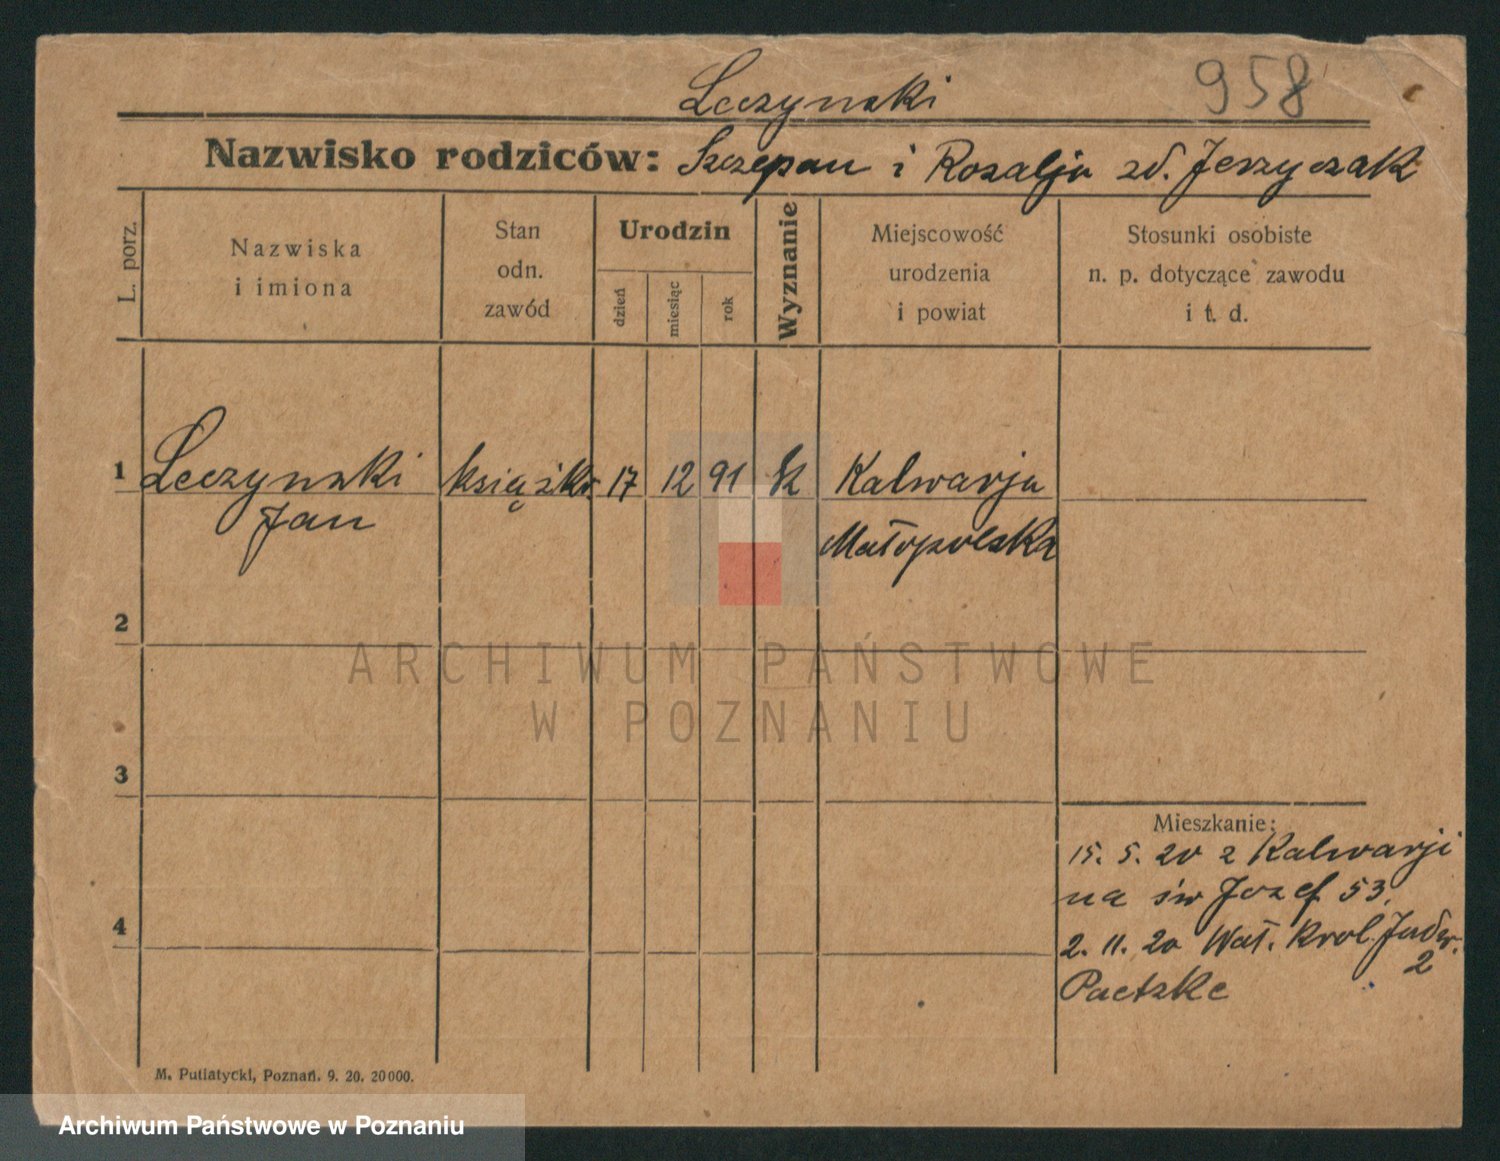 958
Leczynski
Nazwisko rodziców: Szczepan i Rozalja zd. Jerzyczak
L. porz.
Nazwiska
i imiona
Stan
odn.
zawód
Urodzin
dzień
miesiąc
rok
Wyznanie
Miejscowość
urodzenia
i powiat
Stosunki osobiste
n. p. dotyczące zawodu
i t. d.
1 Leczynski książkr 17 12 91 k Kalwarja
Jan Małopolska
2
3
4
Mieszkanie:
15. 5. 20 z Kalwarji
na św Jozef 53.
2. 11. 20 Wał. Krol. Jadw.
2
Paetzke
M. Putiatycki, Poznań. 9. 20. 20000.
ARCHIWUM PAŃSTWOWE
W POZNANIU
Archiwum Państwowe w Poznaniu